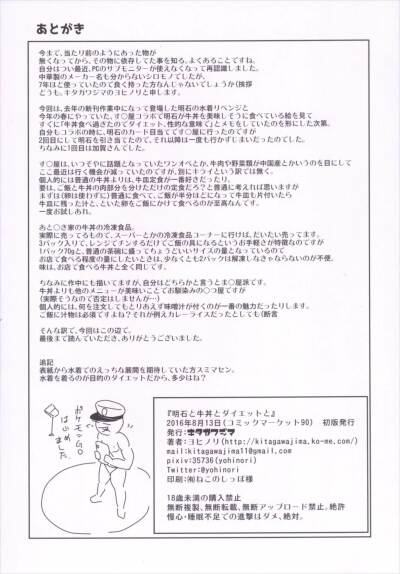 あとがき
今まで、当たり前のようにあった物が
無くなってから、その物に依存してた事を知る。よくあることですね。
自分はつい最近、PCのサブモニターが使えなくなって再認識しました。
中華製のメーカー名も分からないシロモノでしたが、
7年ほど使っていたので良く持った方なんじゃないでしょうか(挨拶
どうも、キタガワジマのヨヒノリと申します。
今回は、去年の新刊作業中になって登場した明石の水着リベンジと
今年の春にやっていた、す〇屋コラボで明石が牛丼を美味しそうに食べている絵を見て
すぐに「牛丼食べ過ぎたのでダイエット、性的な意味で」とメモをしていたのを形にした次第。
自分もコラボの時に、明石のカード目当てです〇屋に行ったのですが
2回目にして明石を引き当てたので、それ以降は一度も行かずじまいだったのでした。
ちなみに1回目は加賀さんでした。
す〇屋は、いっぞやに話題となっていたワンオペとか、牛肉や野菜類が中国産とかいうのを目にして
ここ最近は行く機会が減っていたのですが、別にキライという訳は無く。
個人的には普通の牛丼よりは、牛皿定食が一番好きだったり。
要は、ご飯と牛丼の肉部分を分けただけの定食だろ?と普通に考えれば思いますが
まずは(卵は使わずに)普通に食べて、ご飯が半分ほどになって牛皿も片付いたら
牛皿に残った汁と、といた卵をご飯にかけて食べるのが至高なんです。
一度お試しあれ。
あと〇き家の牛丼の冷凍食品。
実際に売ってるもので、スーパーとかの冷凍食品コーナーに行けば、だいたい売ってます。
3パック入りで、レンジでチンするだけでご飯の具になるというお手軽さが特徴なのですが
1パック70gと、普通の茶碗に盛ってちょうどいいサイズの量となっているので
お店で食べる程度の量にしたいときは、少なくとも2パックは解凍しなきゃならないのが不便。
味は、お店で食べる牛丼と全く同じです。
ちなみに作中にも描いてますが、自分はどちらかと言うとま〇屋派です。
牛丼よりも他のメニューが美味いことでお馴染みの〇つ屋ですが
(実際そうなので否定はしませんが…)
個人的には、何を注文してもとりあえず味噌汁が付くのが一番の魅力だったりします。
ご飯に汁物は必須ですよね?それが例えカレーライスだったとしても(断言
そんな訳で、今回はこの辺で。
最後まで読んでいただき、ありがとうございました。
追記
表紙から水着でのえっちな展開を期待していた方スミマセン。
水着を着るのが目的のダイエットだから、多少はね?
ポケモンGO
はじめました。
『明石と牛丼とダイエットと』
2016年8月13日(コミックマーケット90) 初版発行
発行:キタガワジマ
著者:ヨヒノリ(http://kitagawajima,ko-me.com/)
mail:kitagawajima11@gmail.com
pixiv:35736(yohinori)
Twitter:@yohinori
印刷:㈲ねこのしっぽ様
18歳未満の購入禁止
無断複製、無断転載、無断アップロード禁止。絶許
慢心・睡眠不足での進撃はダメ、絶対。